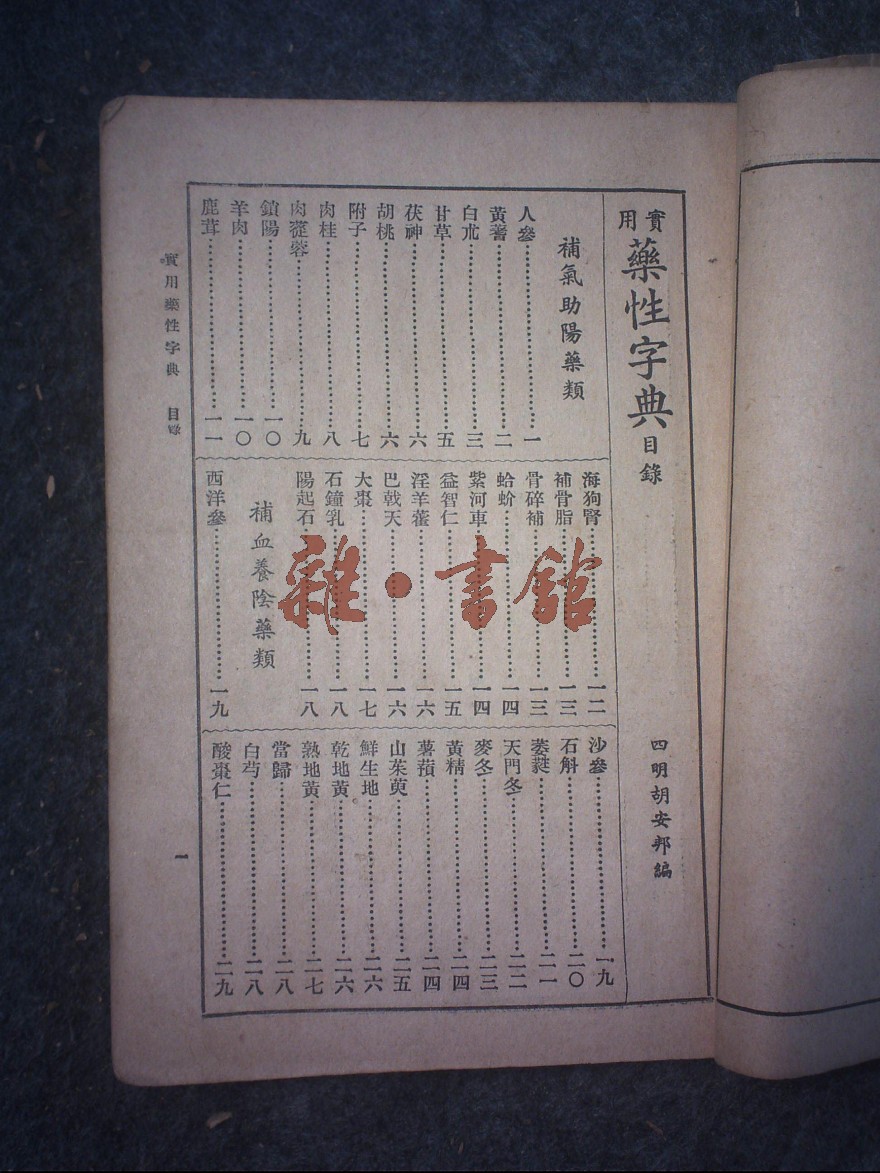 實用藥性字典目錄
四明胡安邦編
補氣助陽藥類
人參一
黃蓍二
白朮三
甘草五
茯神六
胡桃六
附子七
肉桂八
肉蓯蓉九
鎖陽一〇
羊肉一〇
鹿茸一一
海狗腎一二
補骨脂一三
骨碎補一三
蛤蚧一四
紫河車一四
益智仁一五
淫羊藿一六
巴戟天一六
大棗一七
石鐘乳一八
陽起石一八
補血養陰藥類
西洋參一九
沙參一九
石斛二〇
萎蕤二一
天門冬二二
麥冬二三
黃精二四
薯蕷二四
山茱萸二五
鮮生地二六
乾地黃二六
熟地黃二七
當歸二八
白芍二八
酸棗仁二九
實用藥性字典 目錄
一
雜·書館